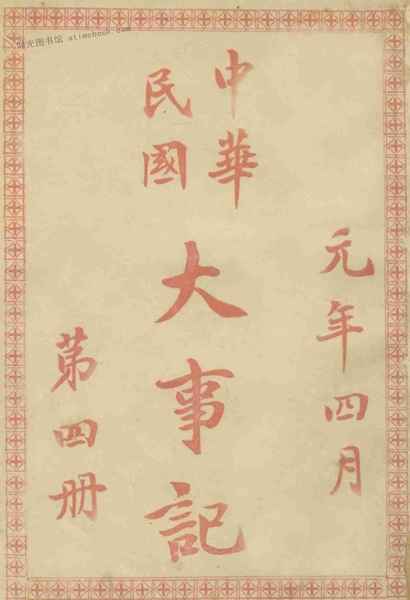 元年四月
中華
民國
大事記
第四册
时光图书馆 atimebook.com